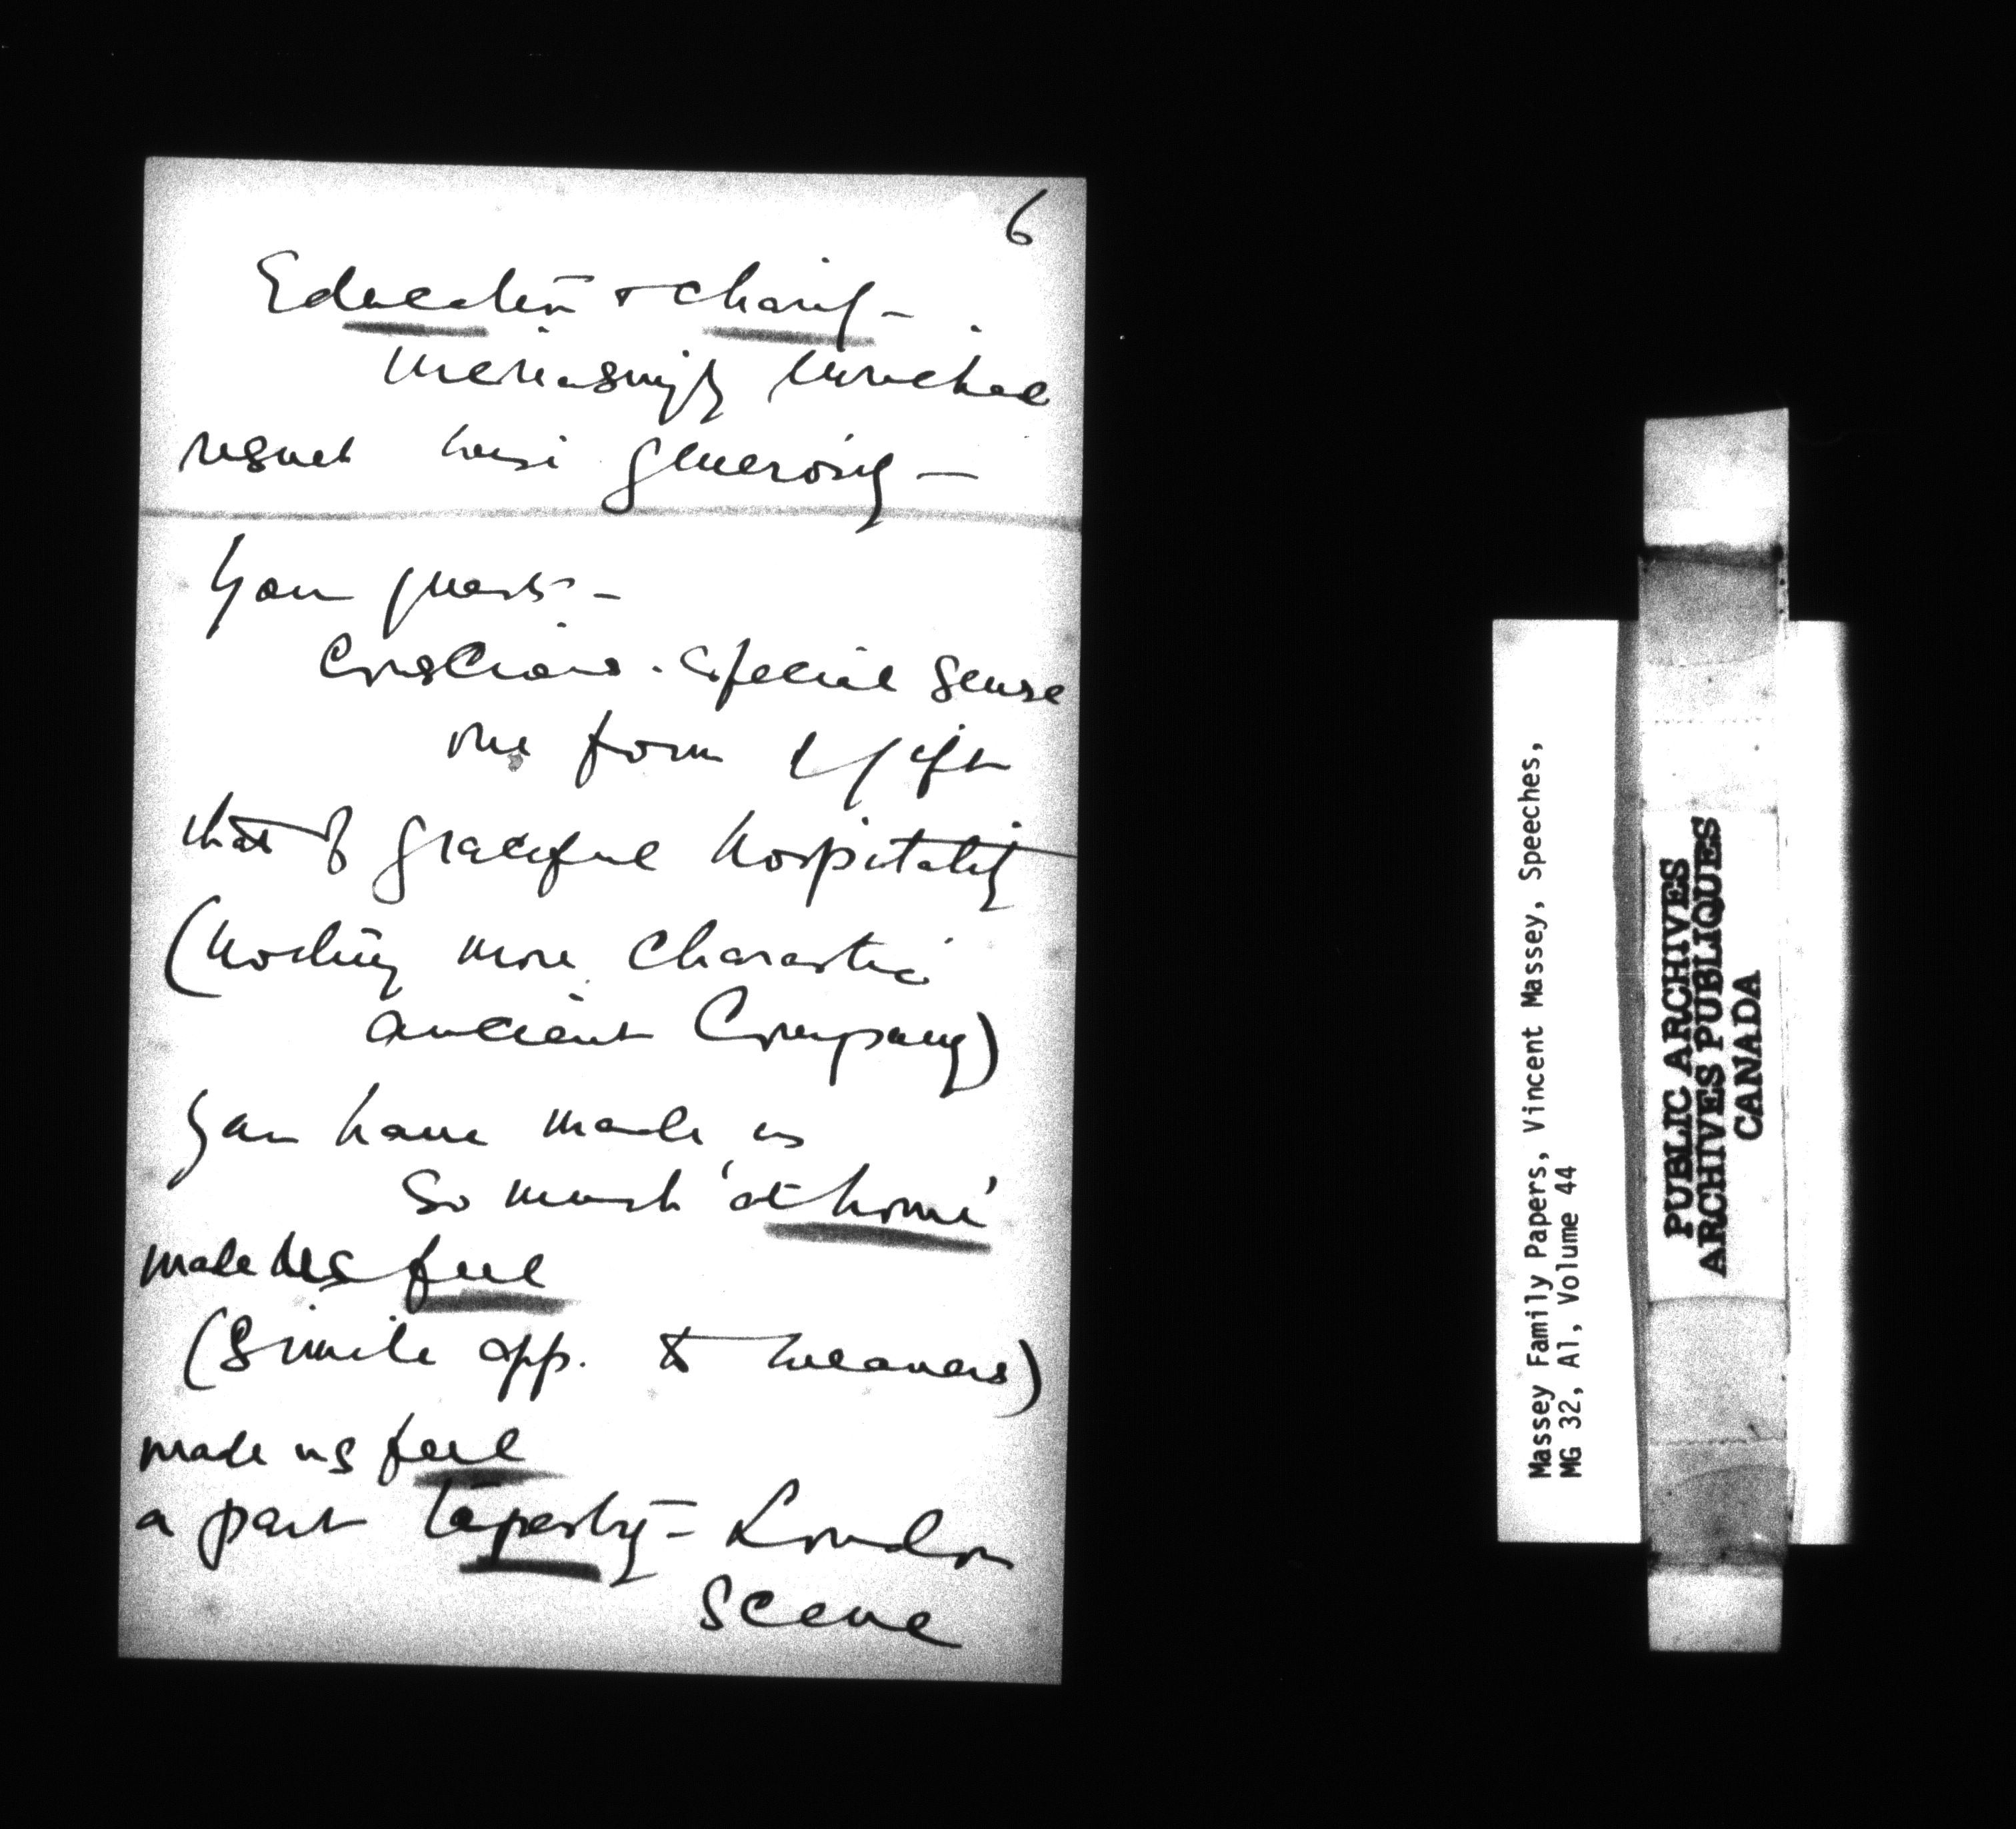 6
Education & charity -
increasingly enriched
result wise generosity -
Your guests -
Conscious . special sense
one form of gift
that of graceful hospitality
(nothing more characteristic
ancient Company)
You have made us
so much 'at home'
made us feel
(Simile app. to weavers)
made us feel
a part tapestry - London
scene
Massey Family Papers, Vincent Massey, Speeches,
MG 32, A1, Volume 44
PUBLIC ARCHIVES
ARCHIVES PUBLIQUES
CANADA